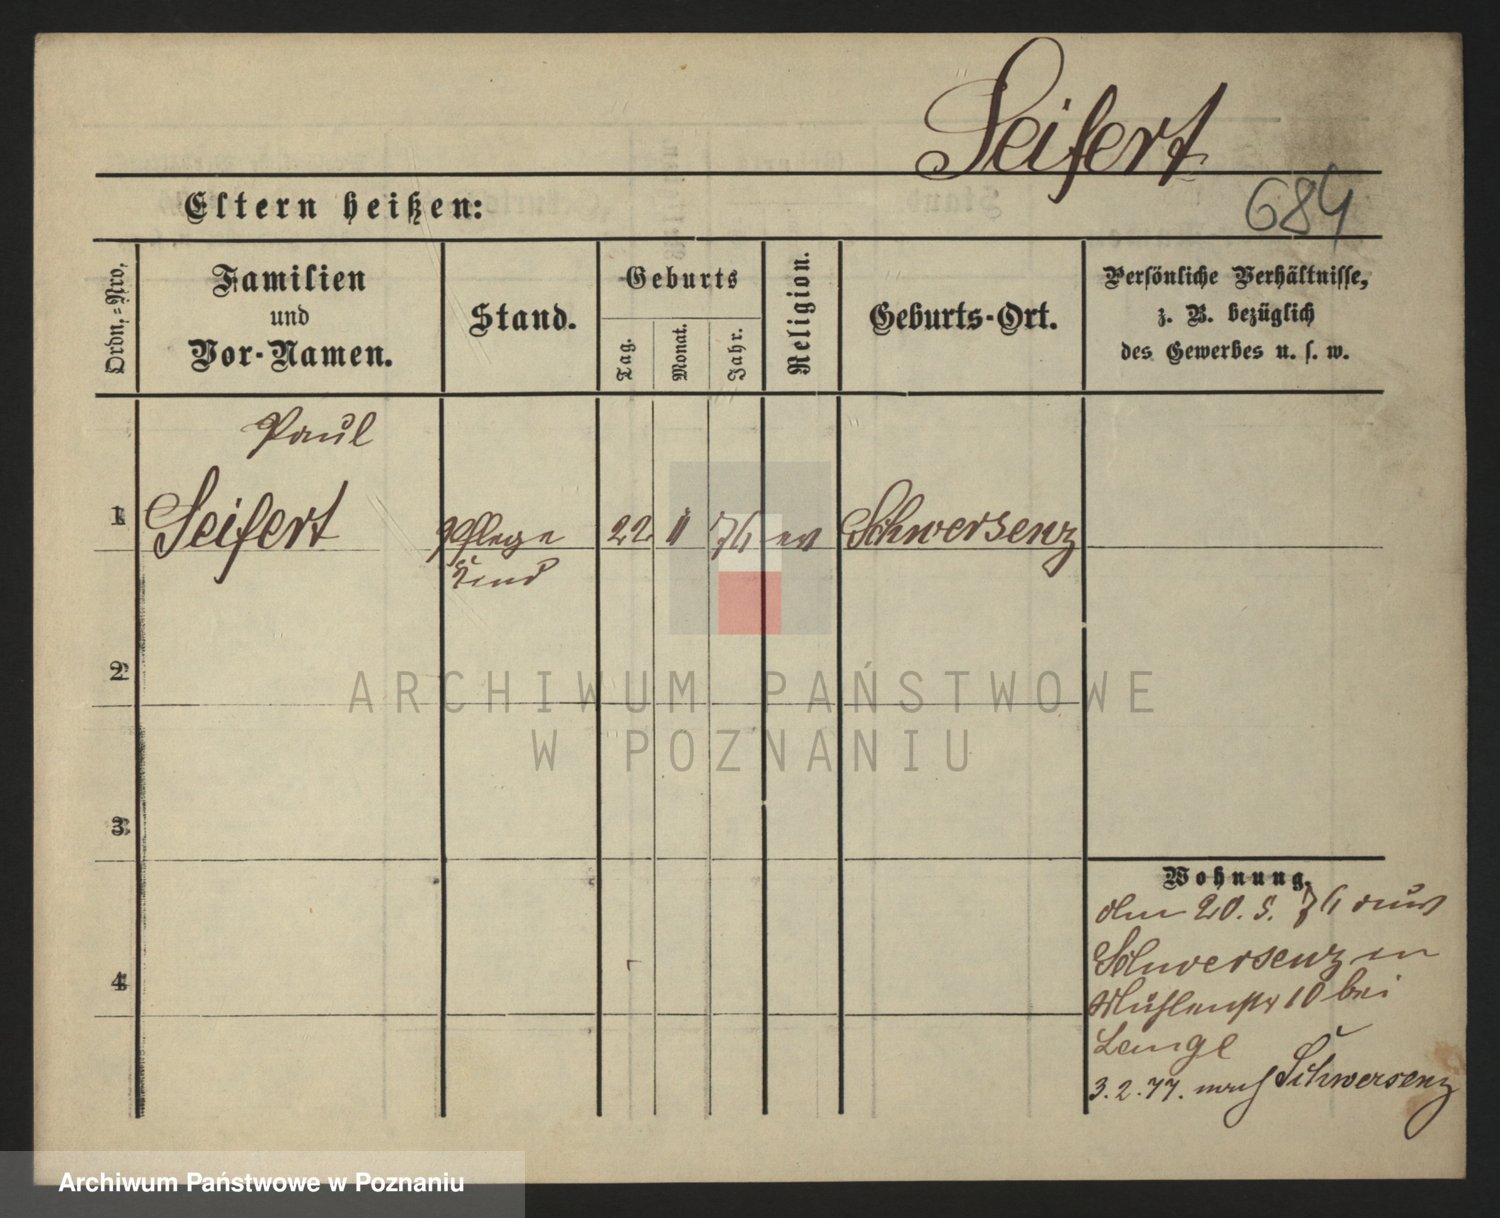 Seifert
684
Eltern heißen:
Ordn.-Nro.
Familien
und
Vor-Namen.
Stand.
Geburts
Tag.
Monat.
Jahr.
Religion.
Geburts-Ort.
Persönliche Verhältnisse,
z. B. bezüglich
des Gewerbes u. s. w.
Paul
1
Seifert
Pflege
Kind
22
76
ev
Schwersenz
2
ARCHIWUM PAŃSTWOWE
W POZNANIU
3
Wohnung.
den 20. 5. 76 aus
Schwersenz in
Mühlenstr 10 bei
Lange
3. 2. 77. nach Schwersenz
4
Archiwum Państwowe w Poznaniu